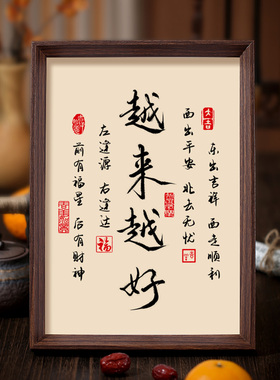 大吉
东出吉祥 南走顺利
西出平安 北去无忧
越来越好
左逢源 右逢达
福
前有福星 后有财神